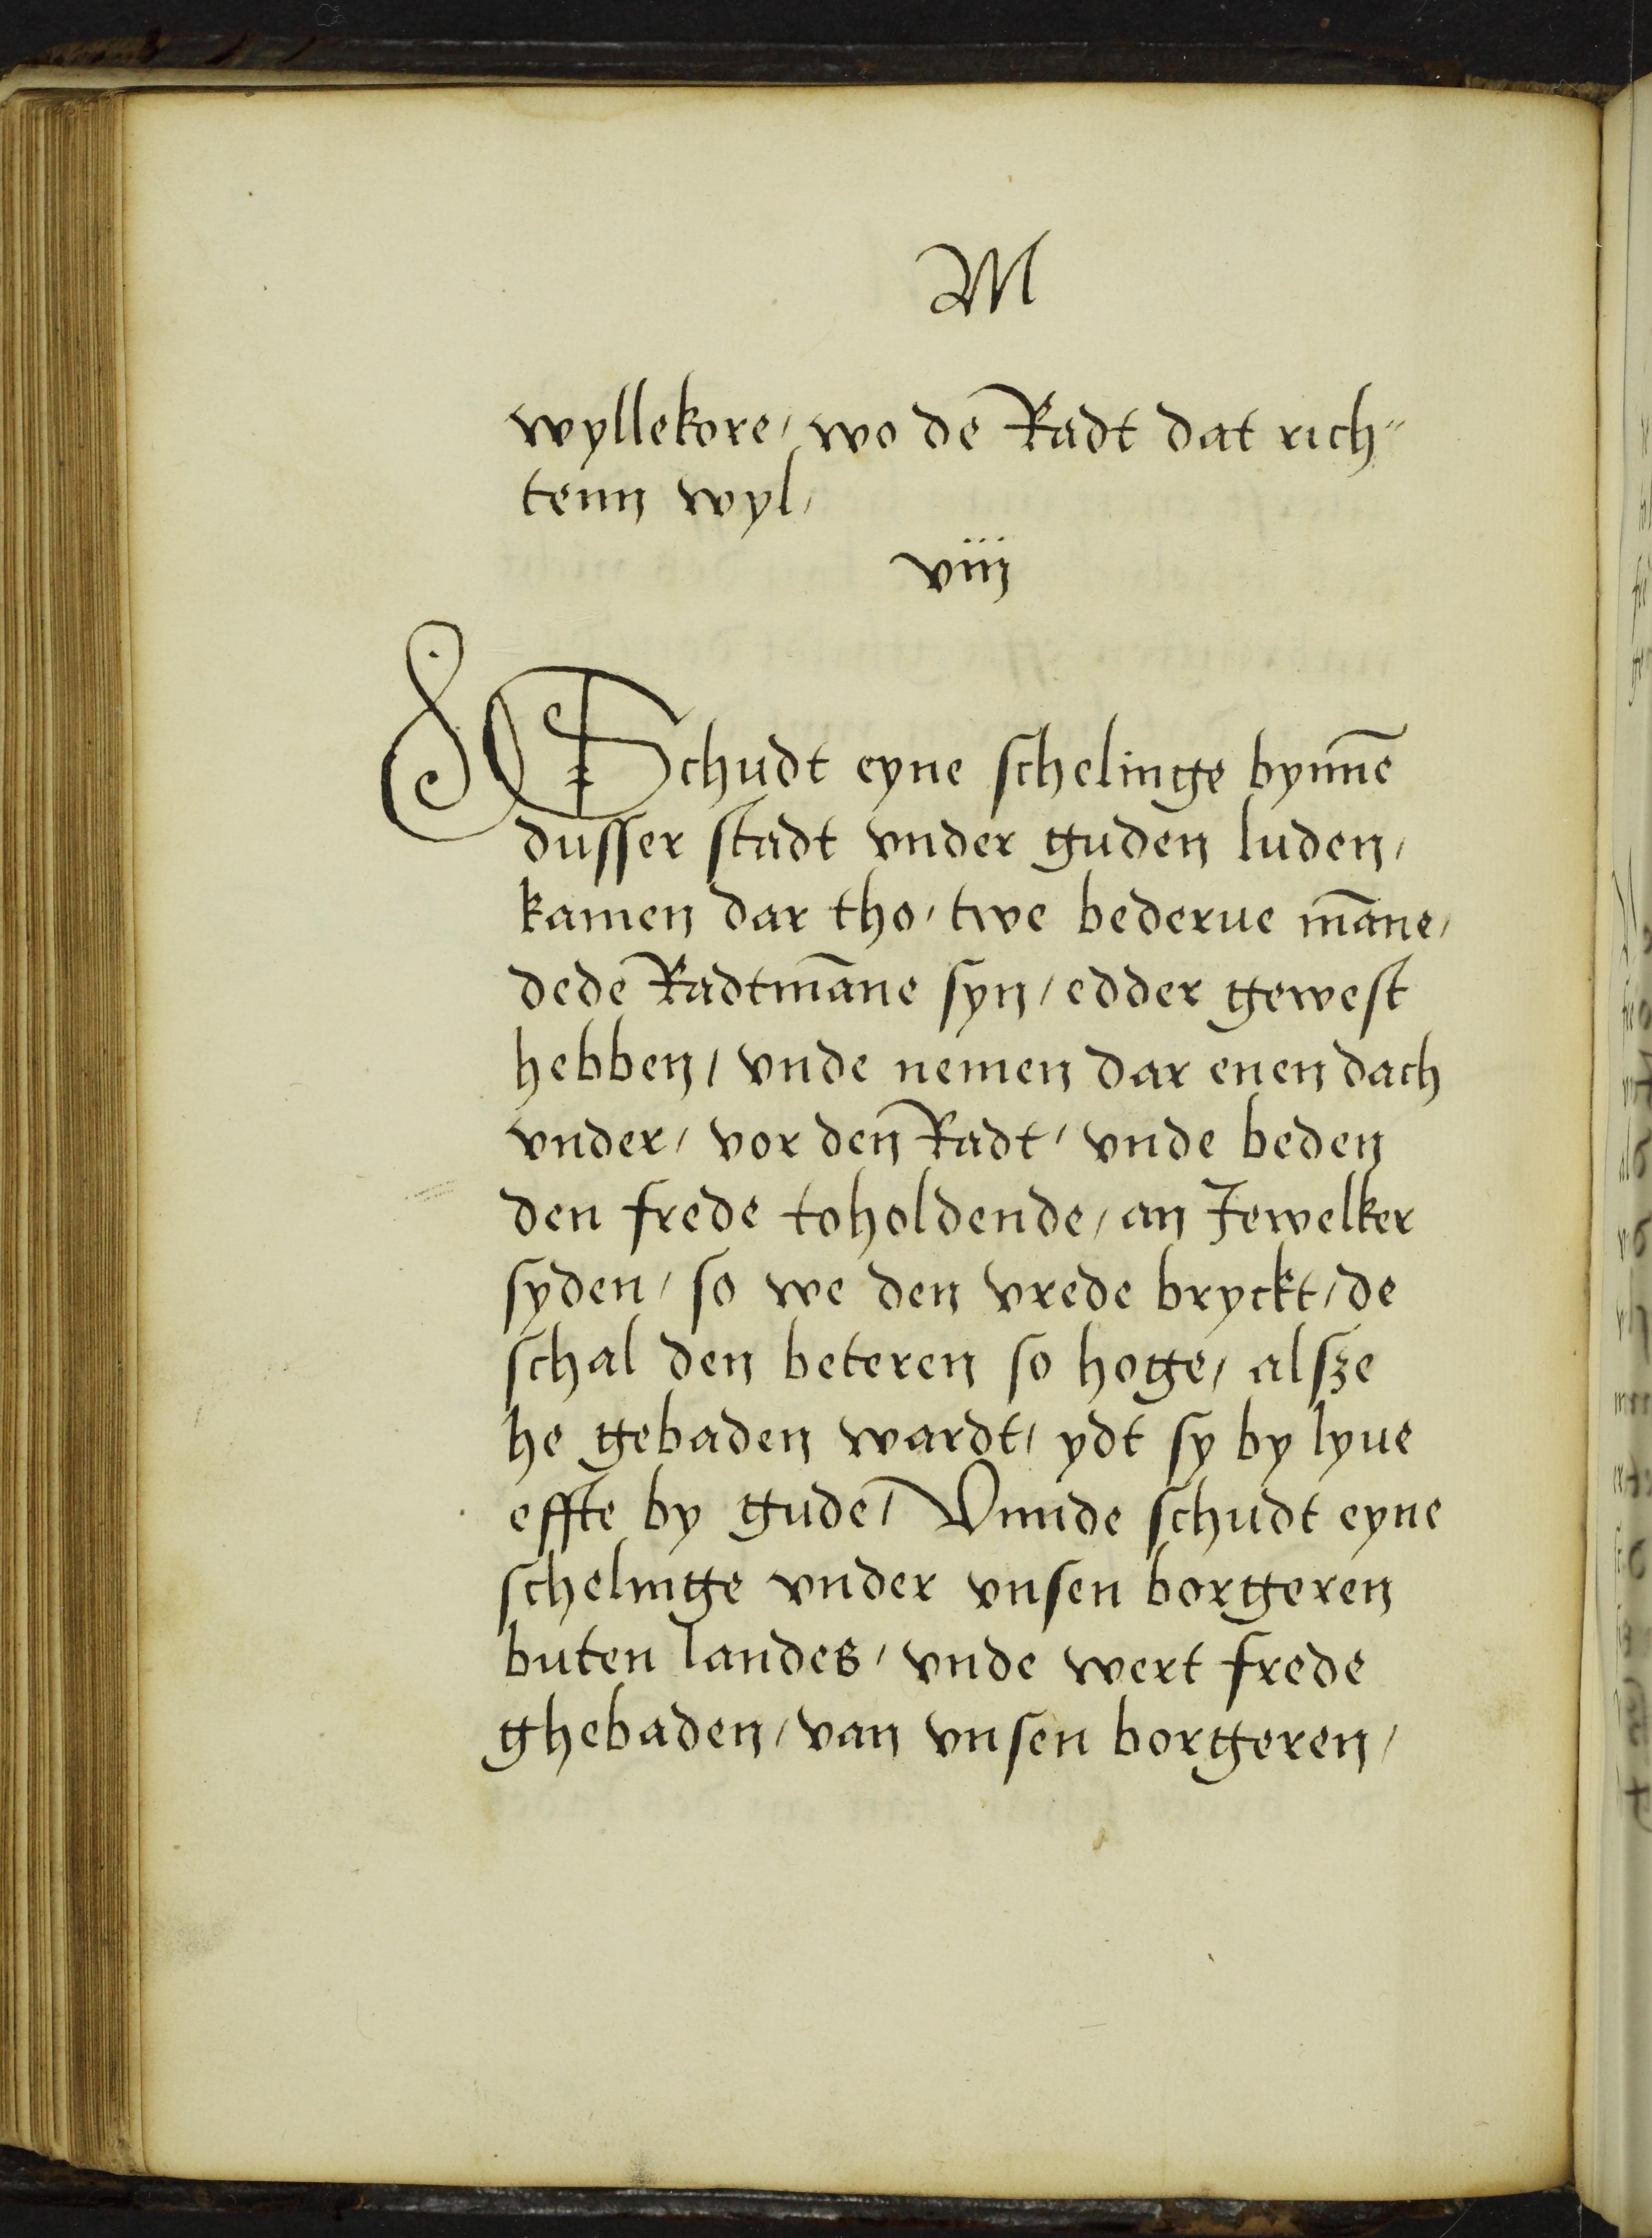 M
wyllekore / wo de Radt dat rich〃
tenn wyl /
viij
Schudt eyne schelinge bynnē
dusser stadt vnder guden luden /
kamen dar tho / twe bederue māne /
dede Radtmāne syn / edder gewest
hebben / vnde nemen dar enen dach
vnder / vor den Radt / vnde beden
den frede toholdende / an Jewelker
syden / so we den vrede bryckt / de
schal den beteren so hoge / alsze
he gebaden wardt / ydt sy by lyue
effte by gude / Vnnde schudt eyne
schelinge vnder vnsen borgeren
buten landes / vnde wert frede
ghebaden / van vnsen borgeren /